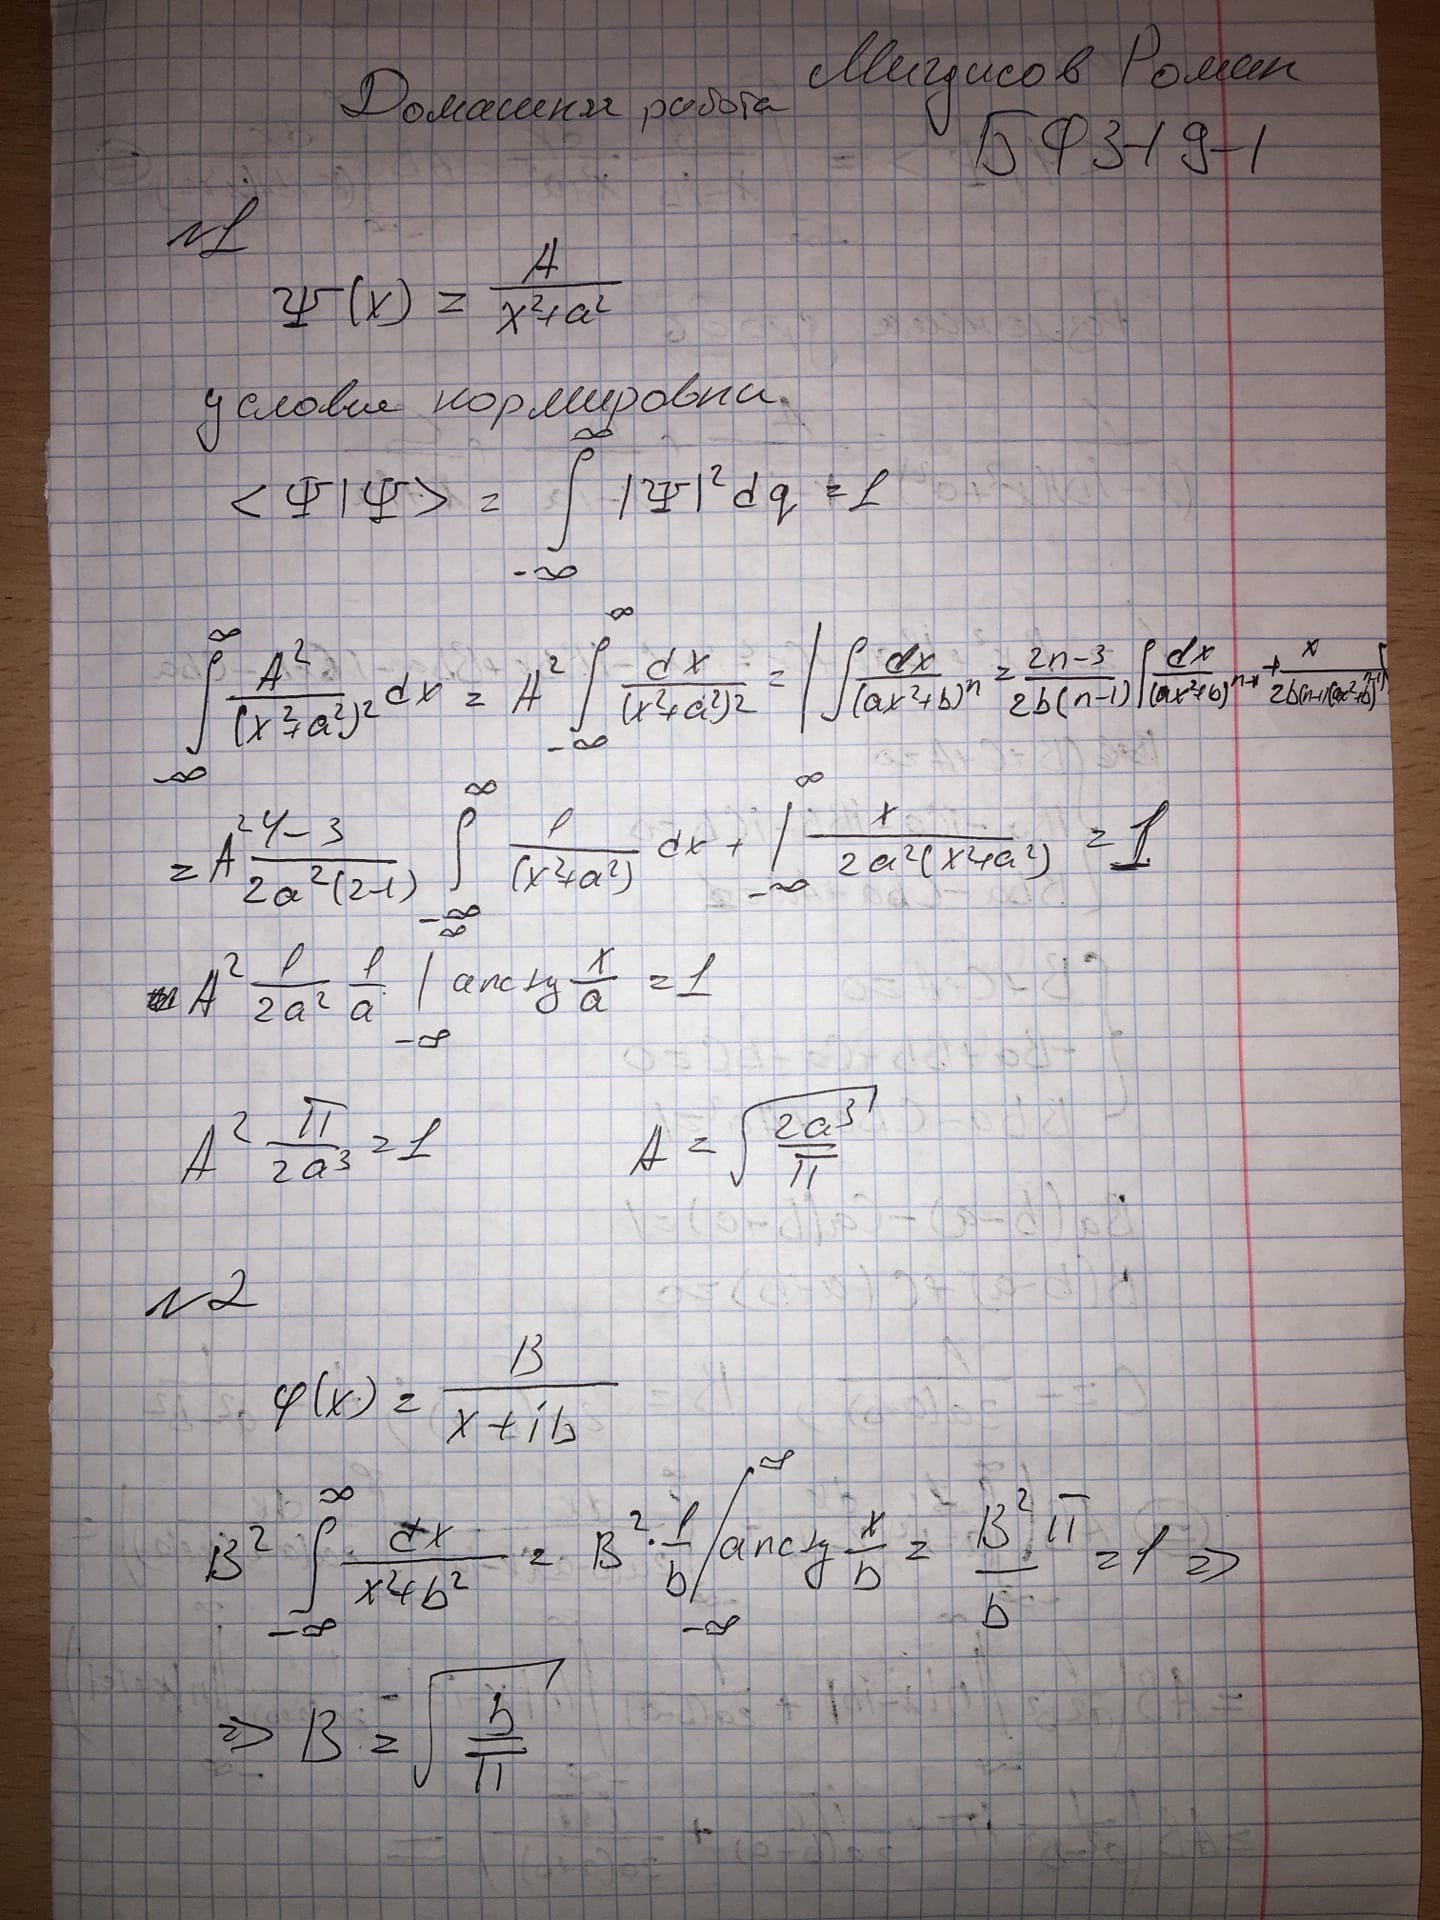 Домашняя работа Мигдисов Роман
БФЗ-19-1
№1
Ψ(x) = A / (x²+a²)
условие нормировки.
<Ψ|Ψ> = ∫_{-∞}^{∞} |Ψ|² dq = 1
∫_{-∞}^{∞} A²/(x²+a²)² dx = A² ∫_{-∞}^{∞} dx/(x²+a²)² = | ∫ dx/(ax²+b)^n = (2n-3)/(2b(n-1)) ∫ dx/(ax²+b)^{n-1} + x/(2b(n-1)(ax²+b)^{n-1}) |
= A² (4-3)/(2a²(2-1)) ∫_{-∞}^{∞} 1/(x²+a²) dx + |_{-∞}^{∞} x/(2a²(x²+a²)) = 1
A² 1/(2a²) 1/a |_{-∞}^{∞} arctg x/a = 1
A² π/(2a³) = 1 A = √(2a³/π)
№2
φ(x) = B/(x+ib)
B² ∫_{-∞}^{∞} dx/(x²+b²) = B² · 1/b |_{-∞}^{∞} arctg x/b = B²π/b = 1 =>
=> B = √(b/π)